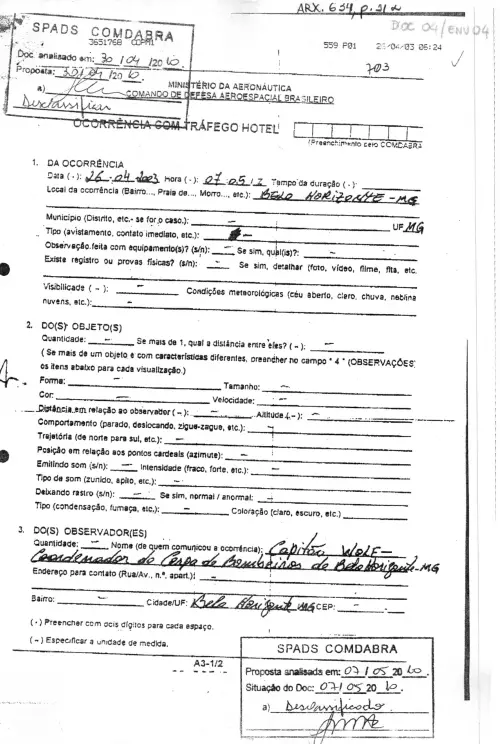 ARX. 654, p. 31
DOC 04/ENV04
SPADS COMDABRA
3651768 COPM1
559 P01 26/04/03 06:24
Doc analisado em: 30 / 04 /20 10.
Proposta: 30/04 /20 10
703
a)
Desclassificar
MINISTÉRIO DA AERONÁUTICA
COMANDO DE DEFESA AEROESPACIAL BRASILEIRO
OCORRÊNCIA COM TRÁFEGO HOTEL
(Preenchimento pelo COMDABRA
1. DA OCORRÊNCIA
Data ( · ): 26 - 04 - 2003 Hora ( · ): 07 05 / Z Tempo da duração ( · ):
Local da ocorrência (Bairro..., Praia de..., Morro..., etc.): BELO HORIZONTE - MG
Município (Distrito, etc.- se for o caso.): - UF MG
Tipo (avistamento, contato imediato, etc.): -
Observação feita com equipamento(s)? (s/n): - Se sim, qual(is)?: -
Existe registro ou provas físicas? (s/n): - Se sim, detalhar (foto, vídeo, filme, fita, etc.
Visibilidade ( - ): - Condições meteorológicas (céu aberto, claro, chuva, neblina
nuvens, etc.): -
2. DO(S) OBJETO(S)
Quantidade: - Se mais de 1, qual a distância entre eles? ( - ): -
( Se mais de um objeto e com características diferentes, preencher no campo " 4 " (OBSERVAÇÕES)
os itens abaixo para cada visualização.)
Forma: - Tamanho: -
Cor: - Velocidade: -
Distância em relação ao observador ( - ): - Altitude ( - ): -
Comportamento (parado, deslocando, zigue-zague, etc.): -
Trajetória (de norte para sul, etc.): -
Posição em relação aos pontos cardeais (azimute): -
Emitindo som (s/n): - Intensidade (fraco, forte, etc.): -
Tipo de som (zunido, apito, etc.): -
Deixando rastro (s/n): - Se sim, normal / anormal: -
Tipo (condensação, fumaça, etc.): - Coloração (claro, escuro, etc.)
3. DO(S) OBSERVADOR(ES)
Quantidade: - Nome (de quem comunicou a ocorrência): Capitão WOLF -
Coordenador do Corpo de Bombeiros de Belo Horizonte-MG
Endereço para contato (Rua/Av., n.º, apart.): -
Bairro: - Cidade/UF: Belo Horizonte MG CEP: -
( · ) Preencher com dois dígitos para cada espaço.
( - ) Especificar a unidade de medida.
A3-1/2
SPADS COMDABRA
Proposta analisada em: 07 / 05 20 10.
Situação do Doc: 07 / 05 20 10.
a) Desclassificado